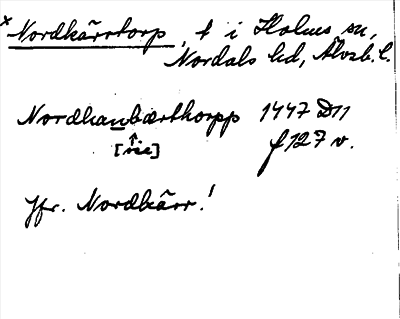 × Nordkärrtorp, t i Holms sn,
Nordals hd, Älvsb. l.
Nordhanbærthorpp 1447 D11
[sic] f 127 v.
Jfr. Nordkärr!